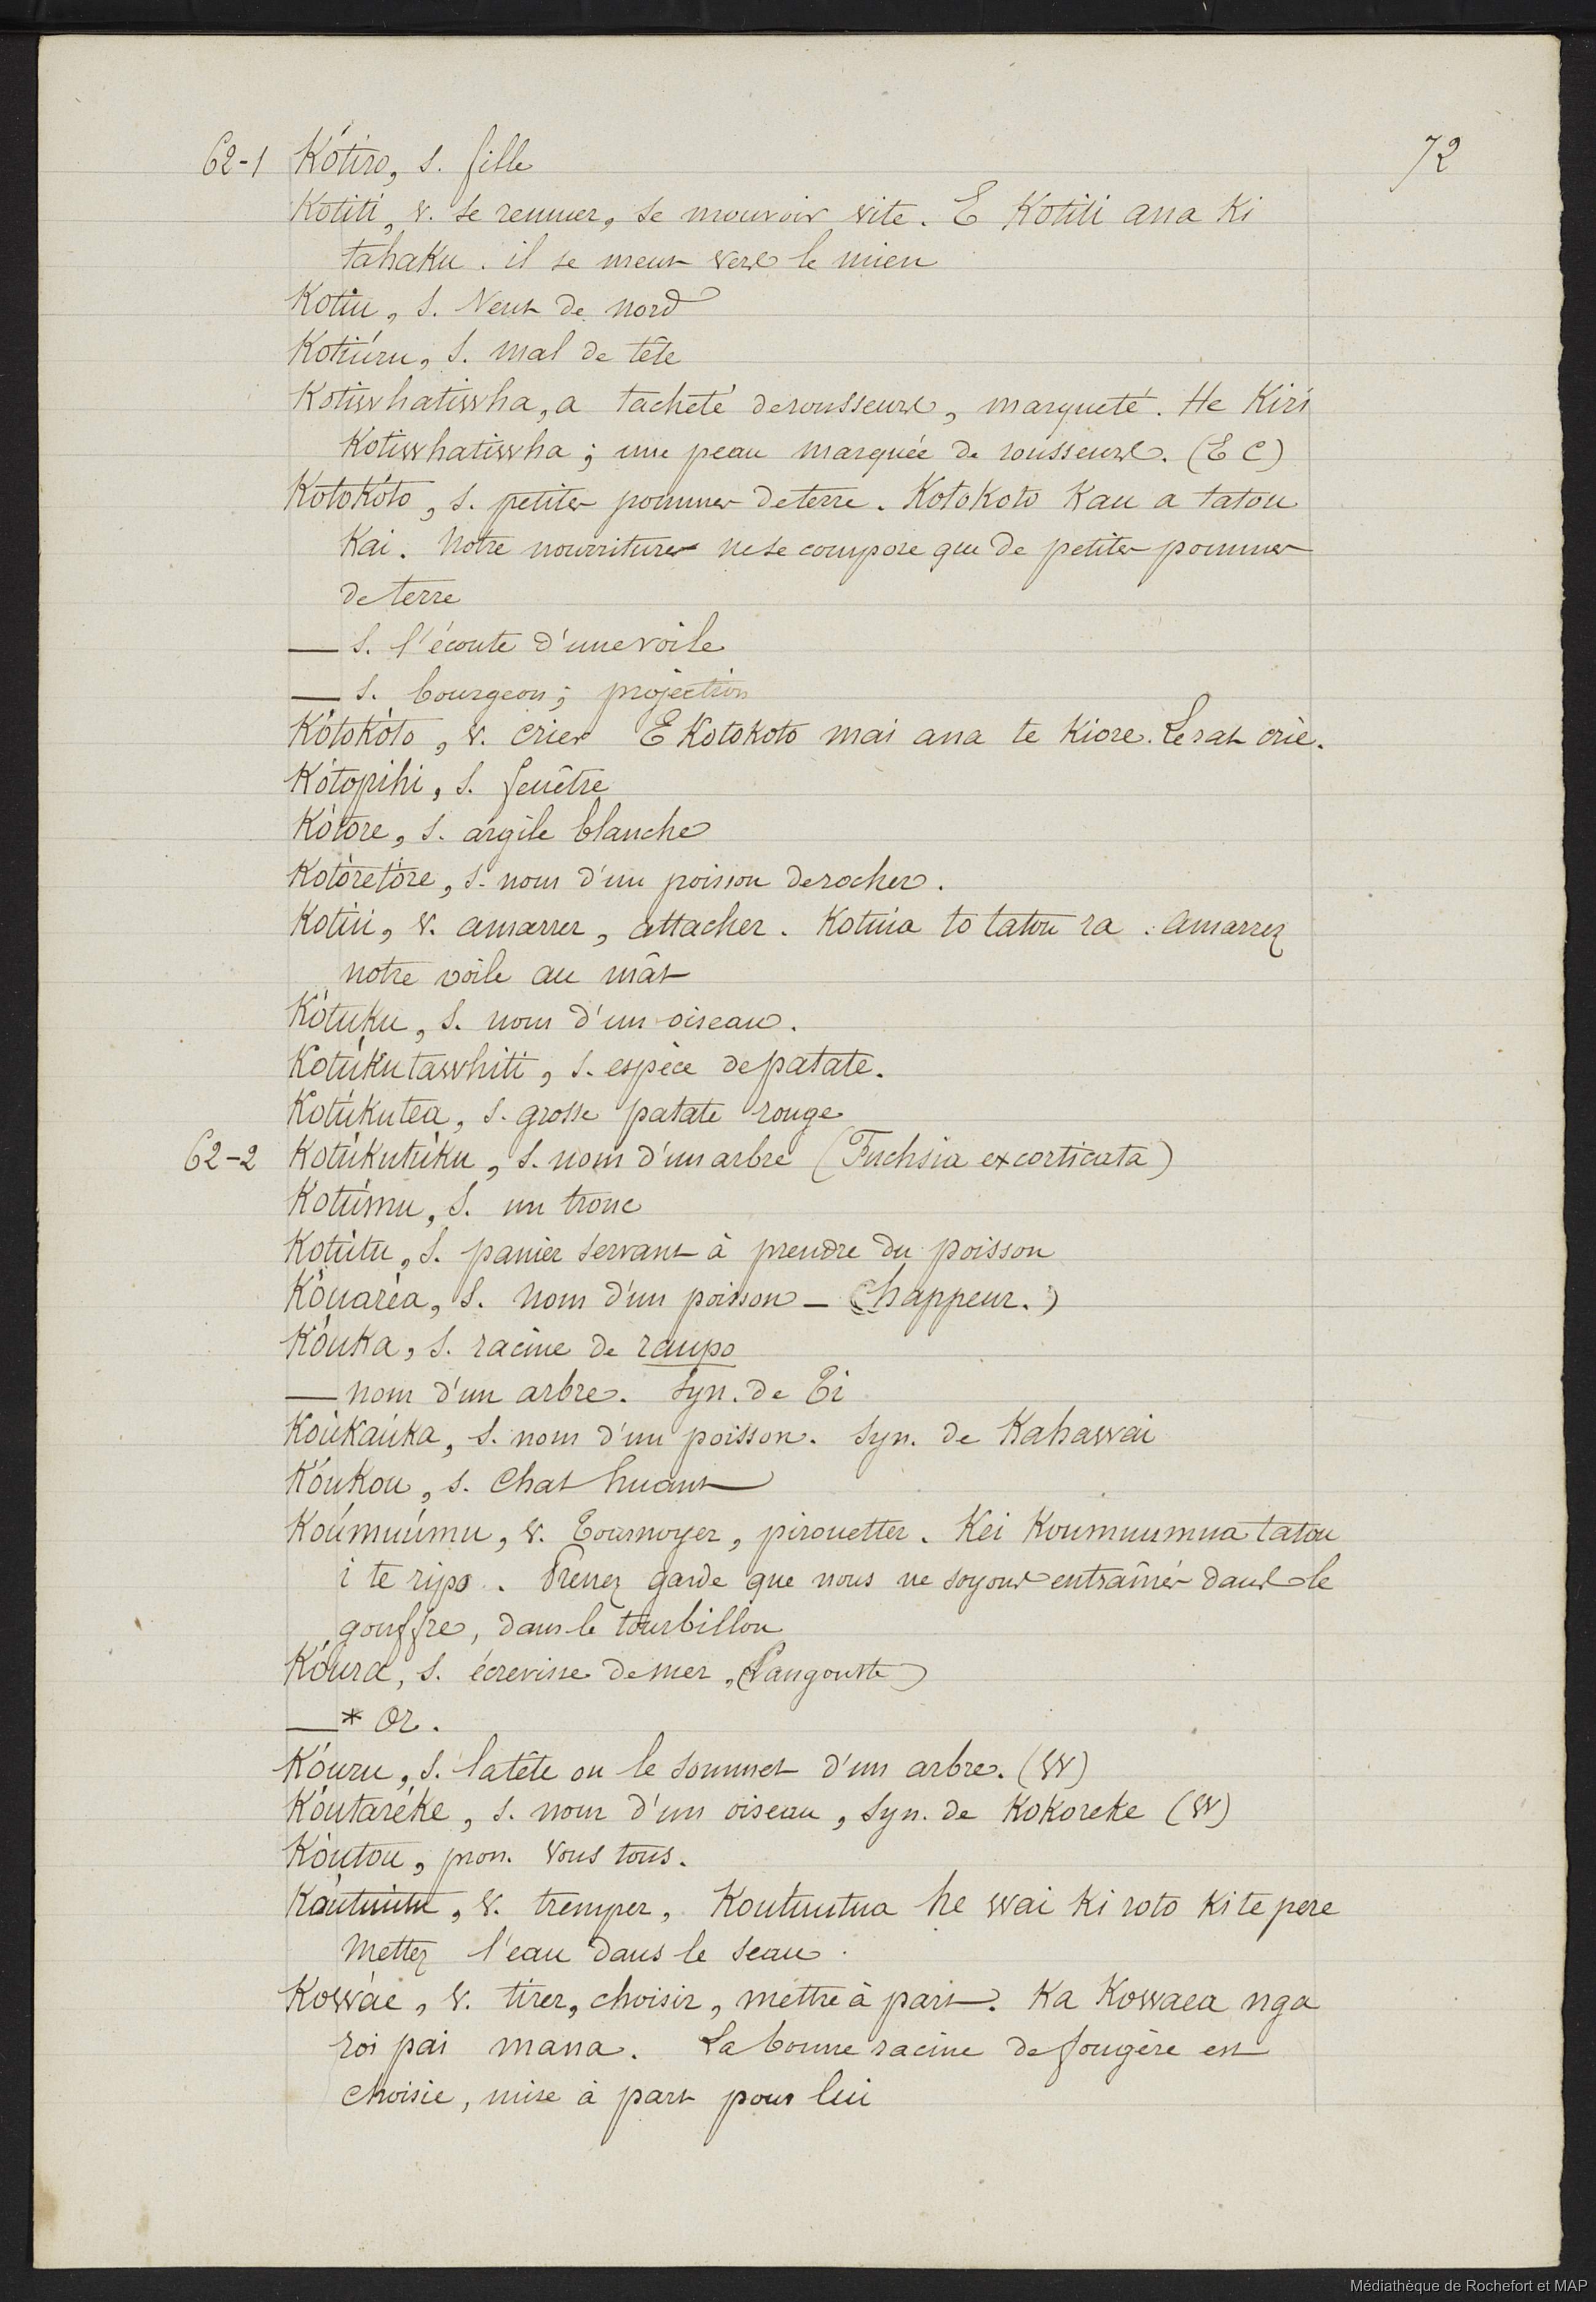 72
62-1 Kótiro, s. fille
Kotiti, v. se remuer, se mouvoir vite. E Kotiti ana Ki
tahaku. il se meut vers le mien
Kotiu, s. Vent de nord
Kotiúru, s. mal de tête
Kotiwhatiwha, a tacheté de rousseurs, marqueté. He Kiri
Kotiwhatiwha; une peau marquée de rousseurs. (E C)
Kotokóto, s. petites pommes de terre. Kotokoto Kau a tatou
Kai. Notre nourriture ne se compose que de petites pommes
de terre
— s. l'écoute d'une voile
— s. bourgeon; projection
Kótokóto, v. crier E Kotokoto mai ana te Kiore. Le rat crie.
Kótopihi, s. fenêtre
Kótore, s. argile blanche
Kotóretóre, s. nom d'un poisson de rocher.
Kotúi, v. amarrer, attacher. Kotuia to tatou ra. Amarrez
notre voile au mât
Kótuku, s. nom d'un oiseau.
Kotúkutawhiti, s. espèce de patate.
Kotúkutea, s. grosse patate rouge
62-2 Kotúkutúku, s. nom d'un arbre (Fuchsia excorticata)
Kotúmu, s. un tronc
Kotútu, s. panier servant à prendre du poisson
Kóuaréa, s. Nom d'un poisson — (happeur.)
Kóuka, s. racine de raupo
— nom d'un arbre. Syn. de Ti
Koúkaúka, s. nom d'un poisson. Syn. de Kahawai
Kóukou, s. Chat huant
Koúmuúmu, v. Tournoyer, pirouetter. Kei Koumuumua tatou
i te ripo. Prenez garde que nous ne soyons entraînés dans le
gouffre, dans le tourbillon
Kóura, s. écrevisse de mer, (Langouste)
— * Or.
Kóuru, s. la tête ou le sommet d'un arbre. (W)
Kóutaréke, s. nom d'un oiseau, Syn. de Kokoreke (W)
Kóutou, pron. Vous tous.
Koútuútu, v. tremper, Koutuutua he wai Ki roto Ki te pere
Mettez l'eau dans le seau.
Kowáe, v. tirer, choisir, mettre à part. Ka Kowaea nga
roi pai mana. La bonne racine de fougère est
choisie, mise à part pour lui
Médiathèque de Rochefort et MAP